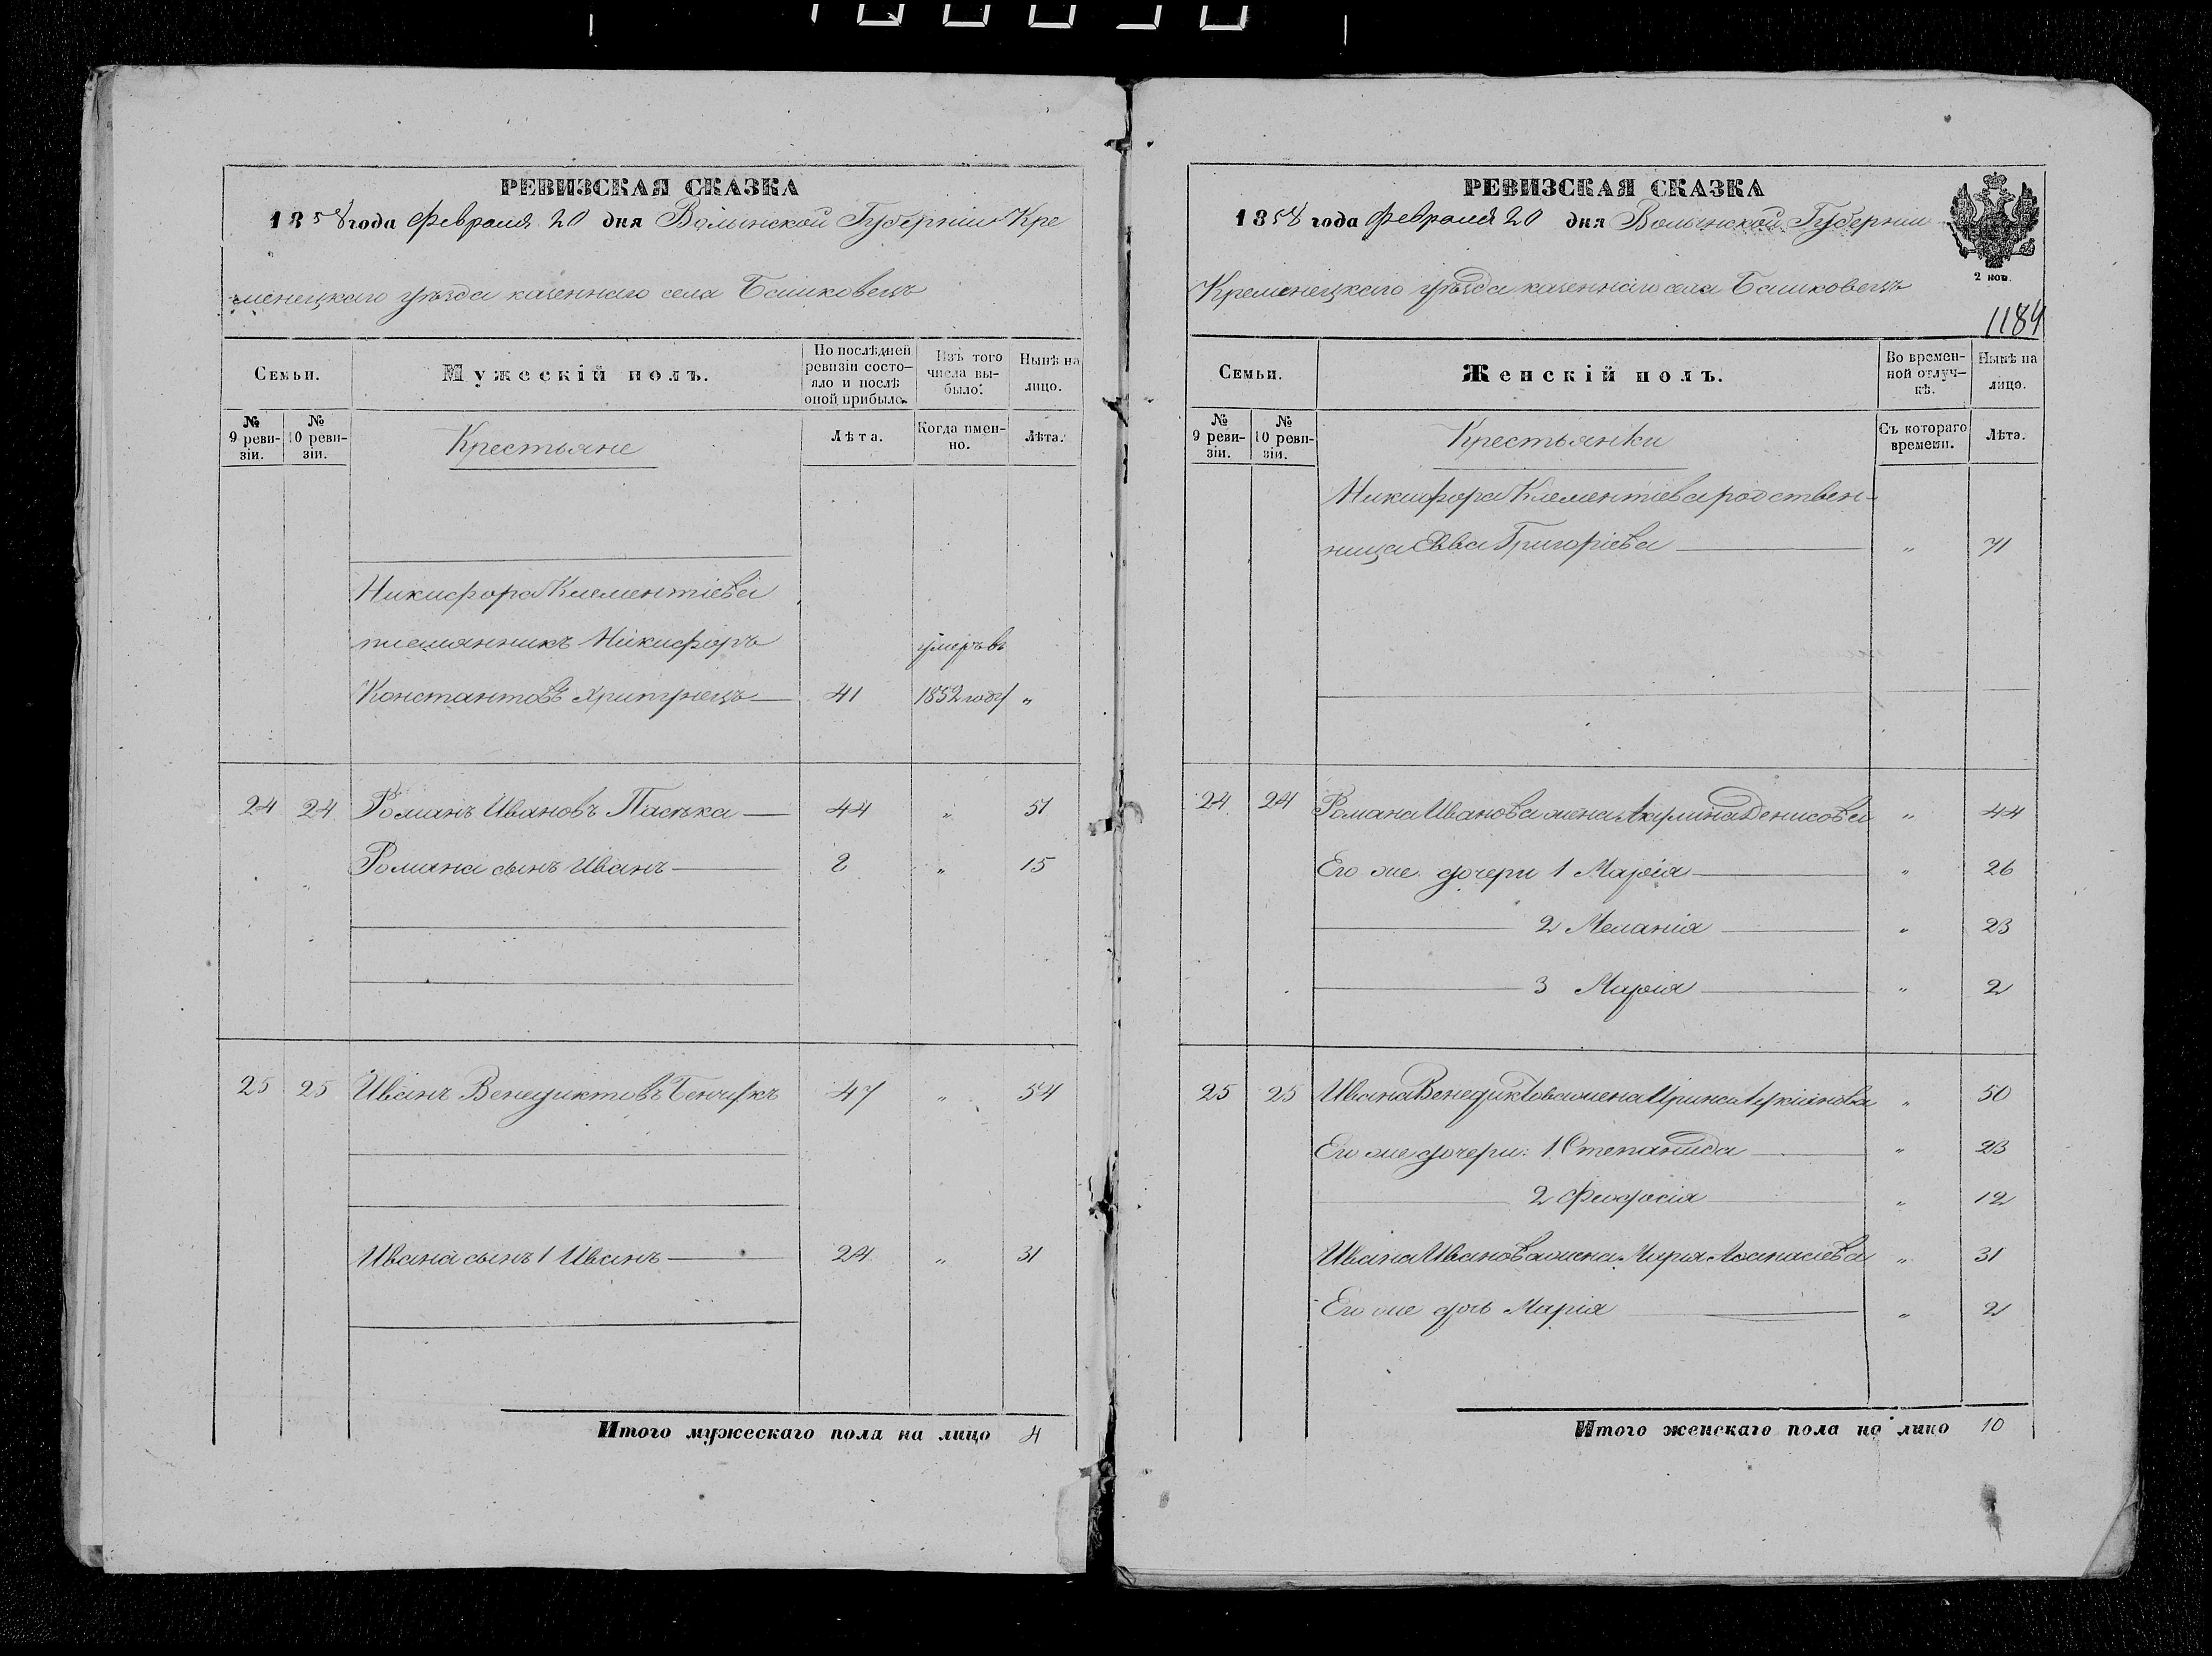 РЕВИЗСКАЯ СКАЗКА
1858 года Февраля 20 дня Волынской Губерніи Кре
менецкаго уѣзда казеннаго села Башковецъ
Семьи.
Мужескій полъ.
По послѣдней ревизіи состояло и послѣ оной прибыло.
Изъ того числа выбыло.
Нынѣ на лицо.
№ 9 ревизіи.
№ 10 ревизіи.
Крестьяне
Лѣта.
Когда именно.
Лѣта.
Никифора Клементіева
племянникъ Никифоръ умеръ въ
Константовъ 41 1852 году "
24 24 Романъ Ивановъ Пасѣка 44 " 51
Романа сынъ Иванъ 8 " 15
25 25 Иванъ Венедиктовъ 47 " 54
Ивана сынъ 1 Иванъ 24 " 31
Итого мужескаго пола на лицо 4
РЕВИЗСКАЯ СКАЗКА
1858 года Февраля 20 дня Волынской Губерніи
2 коп.
Кременецкаго уѣзда казеннаго села Башковецъ
1184
Семьи.
Женскій полъ.
Во временной отлучкѣ.
Нынѣ на лицо.
№ 9 ревизіи.
№ 10 ревизіи.
Крестьянки
Съ котораго времени.
Лѣта.
Никифора Клементіева родствен-
ница Евва Григоріева " 71
24 24 Романа Иванова жена Акулина Денисова " 44
Его же дочери 1 Марія " 26
2 Меланія " 23
3 Марія " 2
25 25 Ивана Венедиктова жена Ирина Лукіянова " 50
Его же дочери: 1 Степанида " 23
2 Феодосія " 12
Ивана Иванова жена Марія Аѳанасіева " 31
Его же дочь Марія " 2
Итого женскаго пола на лицо 10